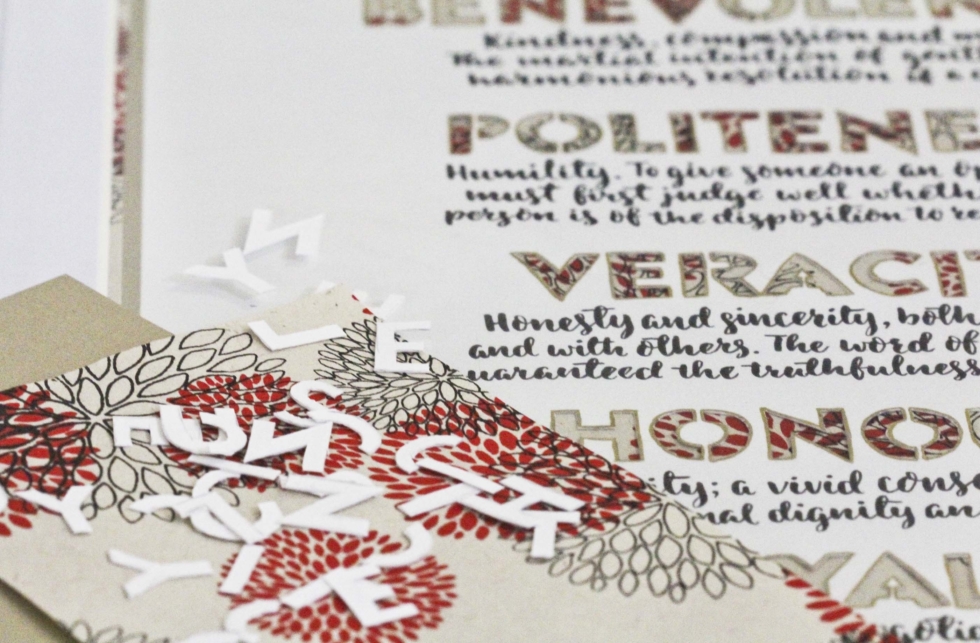 BENEVOLEN
Kindness, compassion and
The martial intention of
harmonious resolution if a
POLITENE
Humility. To give someone an
must first judge well
person is of the disposition to
VERACI
Honesty and sincerity, both
and with others. The word of
uaranteed the truthfulness
HONO
ity; a vivid
nal dignity an
YAL